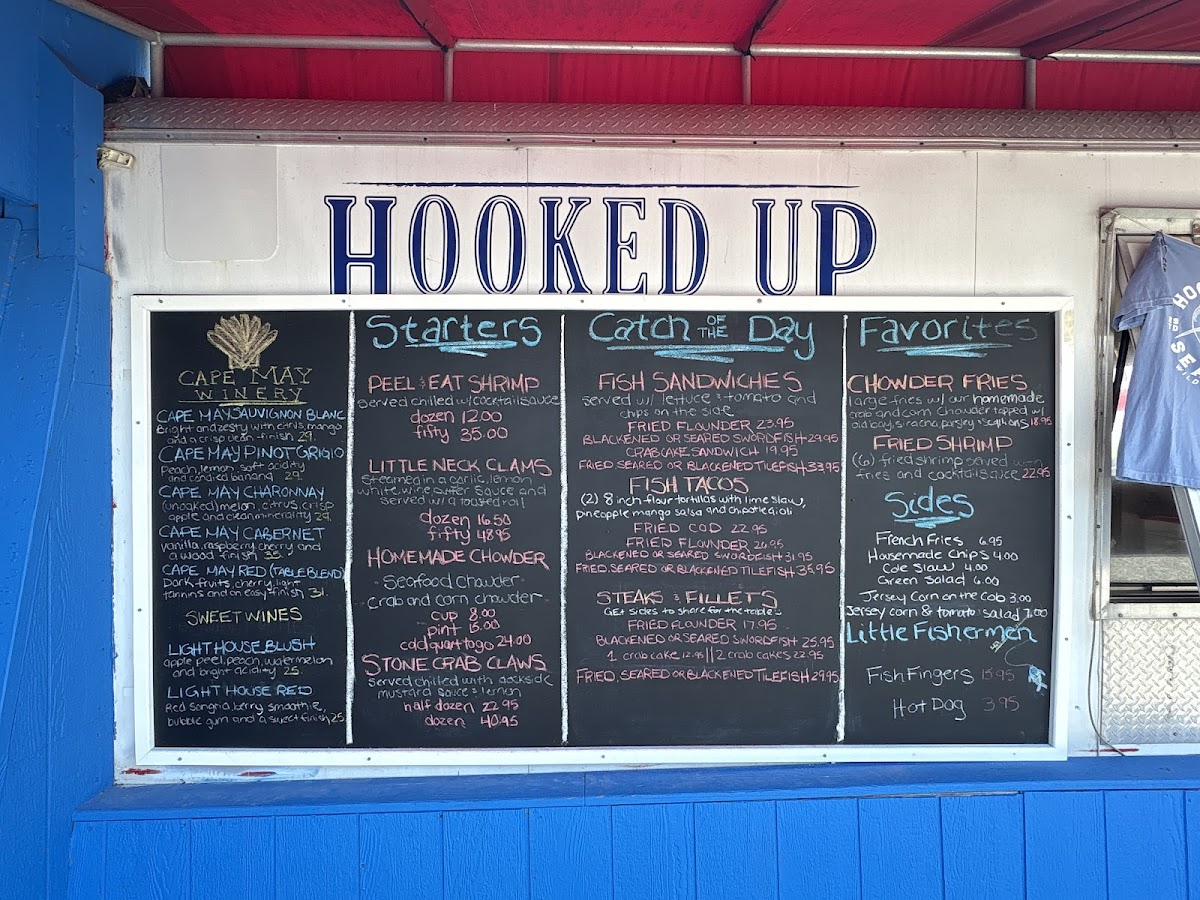 HOOKED UP
CAPE MAY
WINERY
CAPE MAY SAUVIGNON BLANC
Bright and zesty with citrus, mango
and a crisp clean finish 29.
CAPE MAY PINOT GRIGIO
Peach, lemon, soft acidity
and candied banana 29.
CAPE MAY CHARONNAY
(unoaked) melon, citrus, crisp
apple and clean minerality 29.
CAPE MAY CABERNET
vanilla, raspberry, cherry and
a wood finish 35.
CAPE MAY RED (TABLE BLEND)
Dark fruits, cherry, light
tannins and an easy finish 31.
SWEET WINES
LIGHT HOUSE BLUSH
apple peel, peach, watermelon
and bright acidity 25.
LIGHT HOUSE RED
Red Sangria, berry smoothie,
bubble gum and a sweet finish 25.
Starters
PEEL & EAT SHRIMP
served chilled w/cocktail sauce
dozen 12.00
fifty 35.00
LITTLE NECK CLAMS
Steamed in a garlic, lemon
white wine butter sauce and
served w/ a toasted roll
dozen 16.50
fifty 48.95
HOMEMADE CHOWDER
- Seafood chowder -
- Crab and corn chowder -
cup 8.00
pint 15.00
cold quart to go 24.00
STONE CRAB CLAWS
Served chilled with dockside
mustard sauce & lemon
half dozen 22.95
dozen 40.95
Catch OF THE Day
FISH SANDWICHES
served w/ lettuce & tomato and
chips on the side
FRIED FLOUNDER 23.95
BLACKENED OR SEARED SWORDFISH 29.95
CRABCAKE SANDWICH 19.95
FRIED, SEARED OR BLACKENED TILEFISH 33.95
FISH TACOS
(2) 8 inch flour tortillas with lime slaw,
pineapple mango salsa and chipotle aioli
FRIED COD 22.95
FRIED FLOUNDER 26.95
BLACKENED OR SEARED SWORDFISH 31.95
FRIED, SEARED OR BLACKENED TILEFISH 35.95
STEAKS & FILLETS
Get sides to share for the table
FRIED FLOUNDER 17.95
BLACKENED OR SEARED SWORDFISH 25.95
1 crab cake 12.95 || 2 crab cakes 22.95
FRIED, SEARED OR BLACKENED TILEFISH 29.95
Favorites
CHOWDER FRIES
large fries w/ our homemade
crab and corn chowder topped w/
old bay, siracha, parsley & scallions 18.95
FRIED SHRIMP
(6) fried shrimp served with
fries and cocktail sauce 22.95
Sides
French Fries 6.95
Housemade Chips 4.00
Cole Slaw 4.00
Green Salad 6.00
Jersey Corn on the Cob 3.00
Jersey corn & tomato salad 7.00
Little Fishermen
Fish Fingers 15.95
Hot Dog 3.95